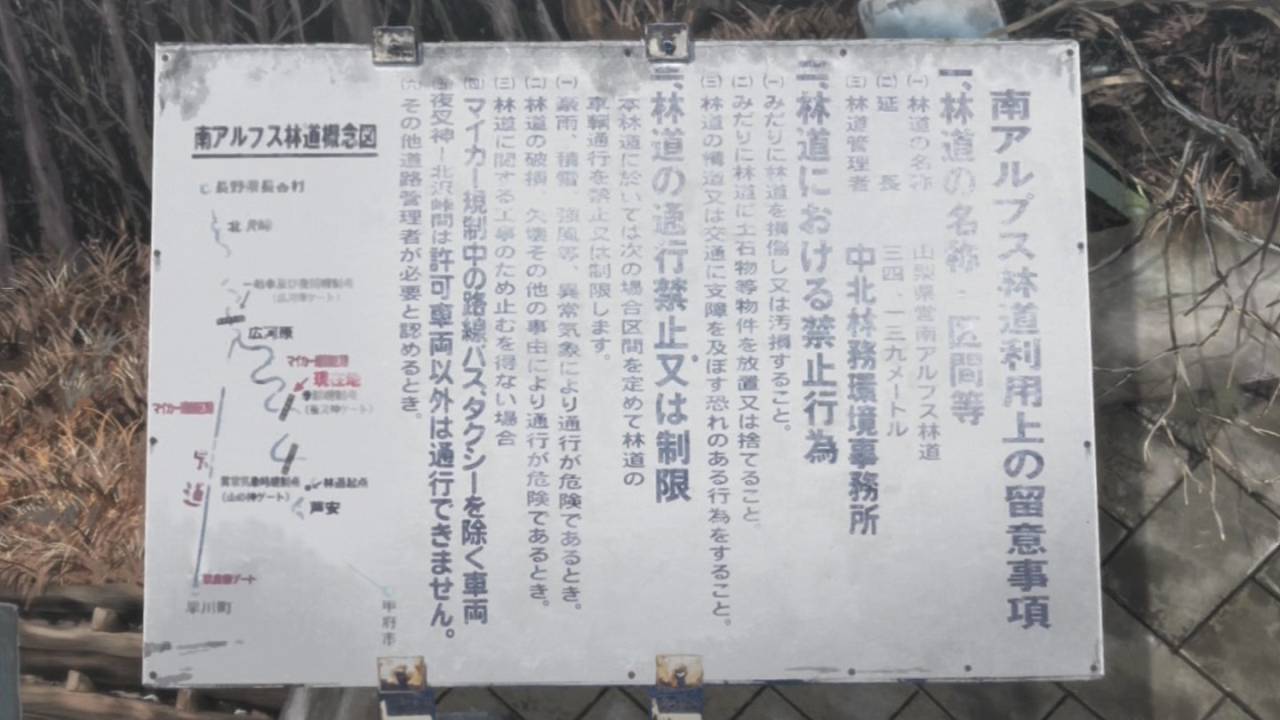 南アルプス林道利用上の留意事項
一、林道の名称・区間等
㈠ 林道の名称 山梨県営南アルプス林道
㈡ 延長 三四、一三九メートル
㈢ 林道管理者 中北林務環境事務所
二、林道における禁止行為
㈠ みだりに林道を損傷し又は汚損すること。
㈡ みだりに林道に土石物等物件を放置又は捨てること。
㈢ 林道の構造又は交通に支障を及ぼす恐れのある行為をすること。
三、林道の通行禁止又は制限
本林道に於いては次の場合区間を定めて林道の
車輌通行を禁止又は制限します。
㈠ 豪雨、積雪、強風等、異常気象により通行が危険であるとき。
㈡ 林道の破損、欠壊その他の事由により通行が危険であるとき。
㈢ 林道に関する工事のため止むを得ない場合
㈣ マイカー規制中の路線バス、タクシーを除く車両
㈤ 夜叉神〜北沢峠間は許可車両以外は通行できません。
㈥ その他道路管理者が必要と認めるとき。
南アルプス林道概念図
長野県長谷村
北沢峠
(広河原ゲート)
広河原
現在地
(夜叉神ゲート)
(山の神ゲート)
林道起点
芦安
早川町
甲府市